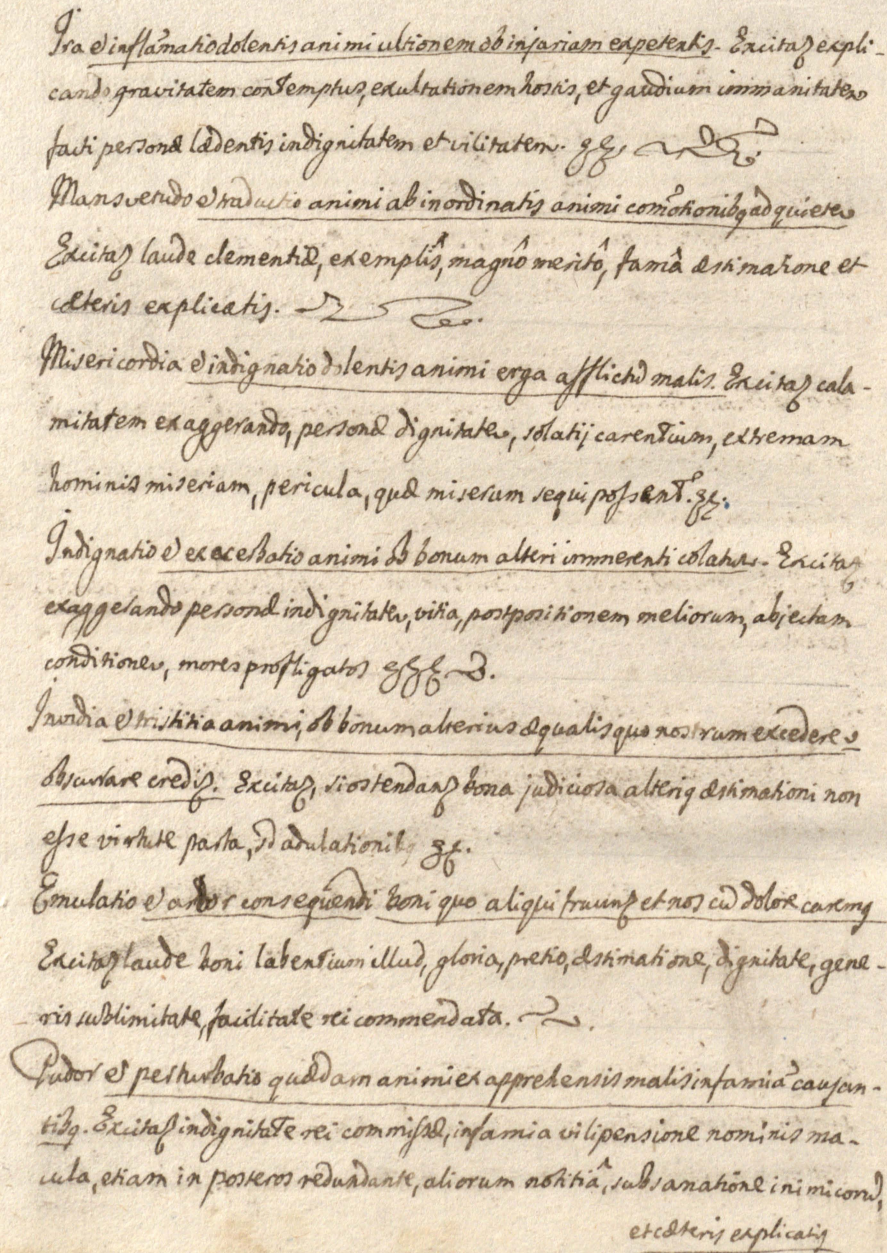 Ira ẽ inflãmatio dolentis animi ultionem ob injuriam expetentis. Excitaꝫ expli-
cando gravitatem contemptus, exultationem hostis, et gaudium immanitatem
facti personæ lædentis indignitatem et vilitatem.
Mansvetudo ẽ traductio animi ab inordinatis animi com̃otionibꝫ ad quietem
Excitaꝫ laude clementiæ, exemplis, magnô meritô, famâ æstimatione et
cæteris explicatis.
Misericordia ẽ indignatio dolentis animi erga afflictũ malis. Excitaꝫ cala-
mitatem exaggerando, personæ dignitatem, solatij carentium, extremam
hominis miseriam, pericula, quæ miserum sequi possent.
Indignatio ẽ exacerbatio animi ob bonum alteri immerenti colatum. Excitaꝫ
exaggerando personæ indignitatem, vitia, postpositionem meliorum, abjectam
conditionem, mores profligatos
Invidia ẽ tristitia animi, ob bonum alterius æqualis quo nostrum excedere
obscurare crediꝫ. Excitaꝫ, si ostendanꝫ bona judiciosa alteriꝫ æstimationi non
esse virtute parta, sed adulationib
Emulatio ẽ ardor consequendi boni quo aliqui fruunꝫ et nos cũ dolore caremꝫ
Excitaꝫ laude boni labentium illud, gloria, pretio, æstimatione, dignitate, gene-
ris sublimitate, facilitate rei commendata.
Pudor ẽ perturbatio quædam animi ex apprehensis malis infamiã causan-
tibꝫ. Excitaꝫ indignitate rei commissæ, infamia vilipensione nominis ma-
cula, etiam in posteros redundante, aliorum notitiâ, subsanatione inimicorũ,
et cæteris explicatis